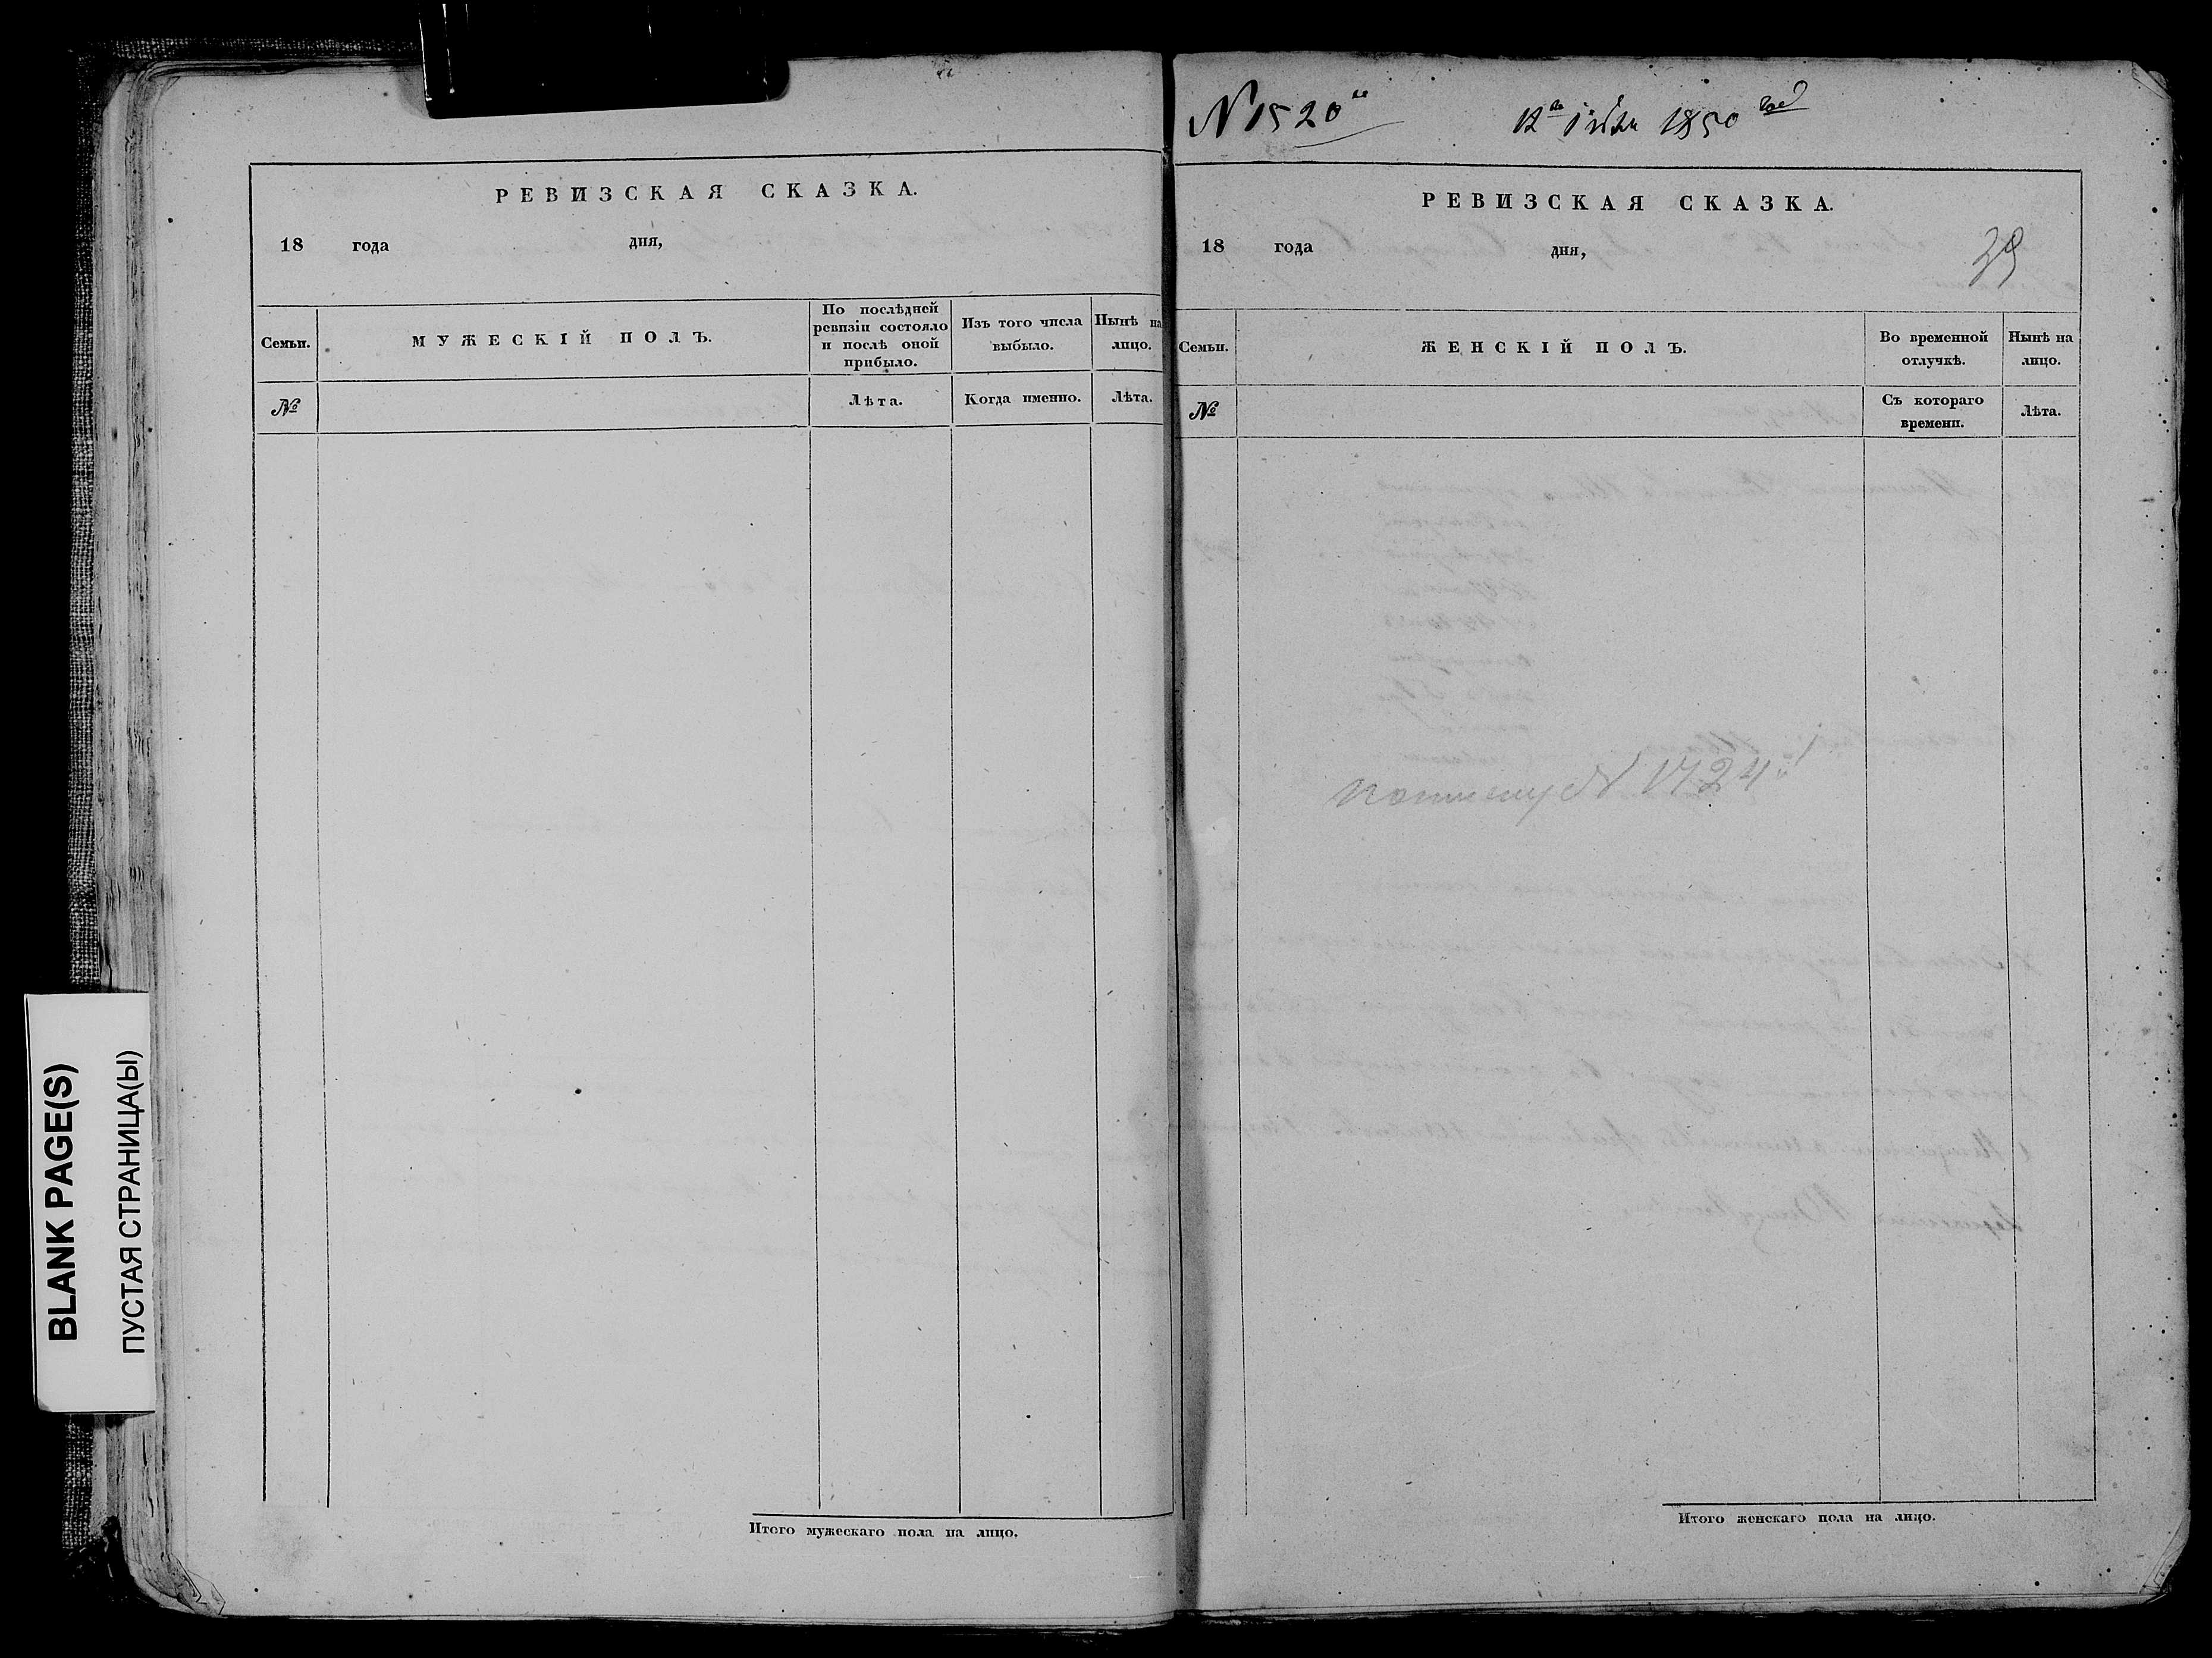 BLANK PAGE(S)
ПУСТАЯ СТРАНИЦА(Ы)
РЕВИЗСКАЯ СКАЗКА.
18 года дня,
Семьи.
МУЖЕСКІЙ ПОЛЪ.
По послѣдней
ревизіи состояло
и послѣ оной
прибыло.
Изъ того числа
выбыло.
Нынѣ на
лицо.
№
Лѣта.
Когда именно.
Лѣта.
Итого мужескаго пола на лицо.
N 1520
12 1850
РЕВИЗСКАЯ СКАЗКА.
18 года дня,
39
Семьи.
ЖЕНСКІЙ ПОЛЪ.
Во временной
отлучкѣ.
Нынѣ на
лицо.
№
Съ котораго
времени.
Лѣта.
N 1724
Итого женскаго пола на лицо.